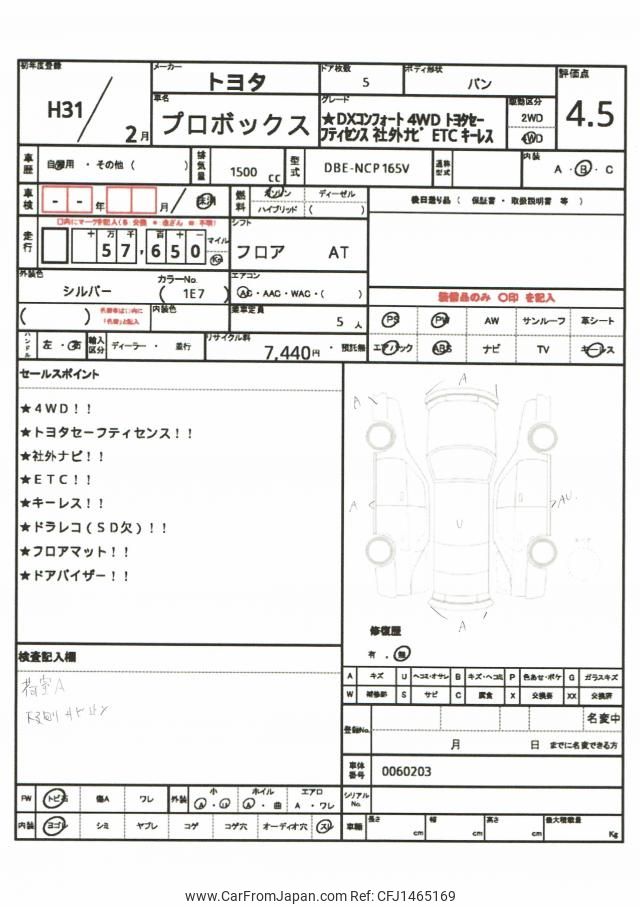 初年度登録
H31
2月
メーカー
トヨタ
ドア枚数
5
ボディ形状
バン
評価点
4.5
車名
プロボックス
グレード
★DXコンフォート 4WD トヨタセー
フティセンス 社外ナビ ETC キーレス
駆動区分
2WD
4WD
車歴
自家用 ・ その他 ( )
排気量
1500 cc
型式
DBE-NCP165V
通称型式
内装
A ・ B ・ C
車検
- - 年 月 /
燃料
ガソリン ディーゼル
ハイブリッド ( )
後日送り品 ( 保証書 ・ 取扱説明書 等 )
走行
十 万 千 百 十 一
57,650
マイル
Km
シフト
フロア AT
外装色
シルバー
カラーNo.
( 1E7 )
エアコン
AC・AAC・WAC・( )
装備品のみ 〇印 を記入
内装色
乗車定員
5 人
PS PW AW サンルーフ 革シート
エアバック ABS ナビ TV キーレス
ハンドル
左 ・ 右
輸入区分
ディーラー ・ 並行
リサイクル料
7,440円 ・ 預託無
セールスポイント
★4WD!!
★トヨタセーフティセンス!!
★社外ナビ!!
★ETC!!
★キーレス!!
★ドラレコ(SD欠)!!
★フロアマット!!
★ドアバイザー!!
A
A
A
U
AU
A
修復歴
有 . 無
検査記入欄
荷室A
A キズ U ヘコミ・オサレ B キズ・ヘコミ P 色あせ・ボケ G ガラスキズ
W 補修跡 S サビ C 腐食 X 交換要 XX 交換済
登録No.
名変中
月 日 までに名変できる方
車体番号
0060203
シリアルNo.
FW トビ石 傷A ワレ
外装
小
A ・ U
ホイル
A ・ 曲
エアロ
A ・ ワレ
内装 ヨゴレ シミ ヤブレ コゲ コゲ穴 オーディオ穴 スレ
車輛
長さ cm
幅 cm
高さ cm
最大積載量 Kg
www.CarFromJapan.com Ref: CFJ1465169